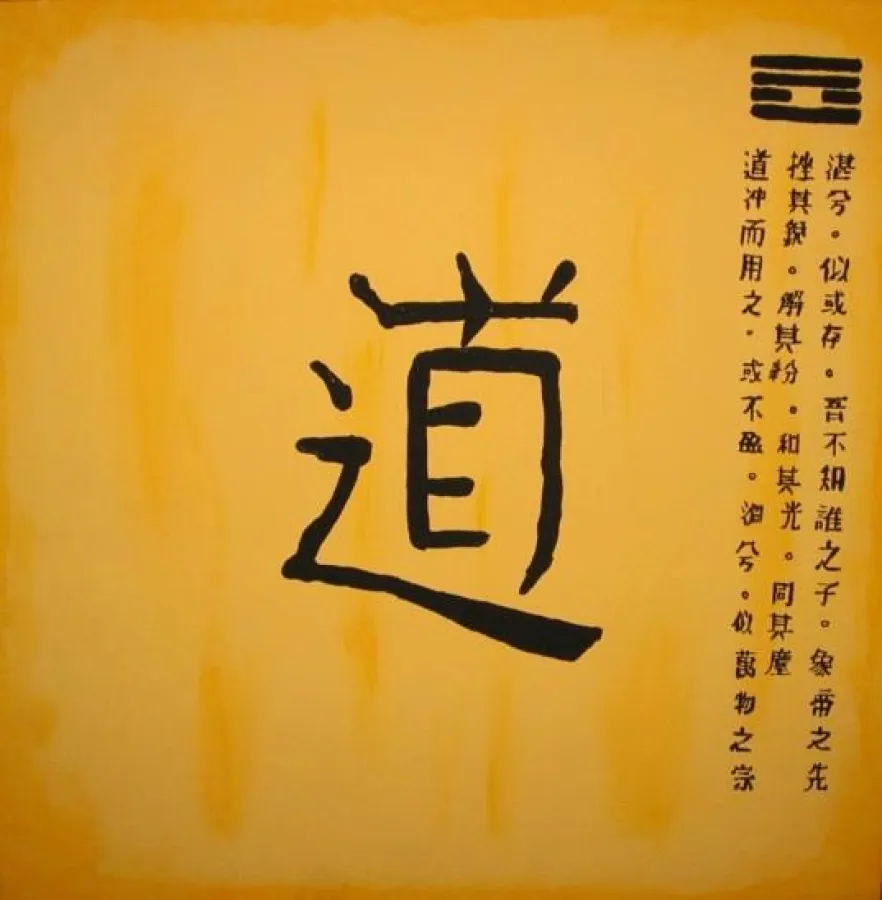 道
道冲而用之．或不盈。兮。似萬物之宗
挫其。解其粉。和其光。同其塵
湛兮。似或存。吾不知誰之子。象帝之先